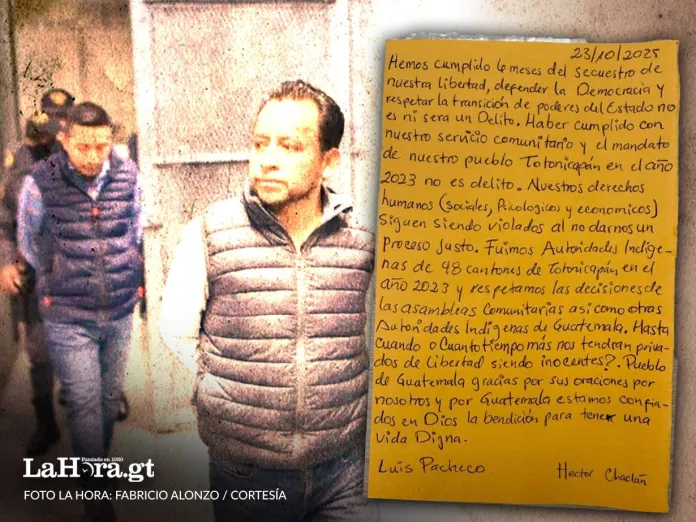 23/10/2025
Hemos cumplido 6 meses del secuestro de
nuestra libertad, defender la Democracia y
respetar la transición de poderes del Estado no
es ni sera un Delito. Haber cumplido con
nuestro servicio comunitario y el mandato
de nuestro pueblo Totonicapán en el año
2023 no es delito. Nuestros derechos
humanos (sociales, Psicologicos y economicos)
Siguen siendo violados al no darnos un
Proceso Justo. Fuimos Autoridades Indige-
nas de 48 cantones de Totonicapán en el
año 2023 y respetamos las decisiones de
las asambleas Comunitarias asi como otras
Autoridades Indigenas de Guatemala. Hasta
Cuando o Cuanto tiempo más nos tendran priva-
dos de Libertad siendo inocentes?. Pueblo
de Guatemala gracias por sus oraciones por
nosotros y por Guatemala estamos confia-
dos en Dios la bendición para tener una
vida Digna.
Luis Pacheco
Hector Chaclán
Fundado en 1920
LaHora.gt
FOTO LA HORA: FABRICIO ALONZO / CORTESÍA